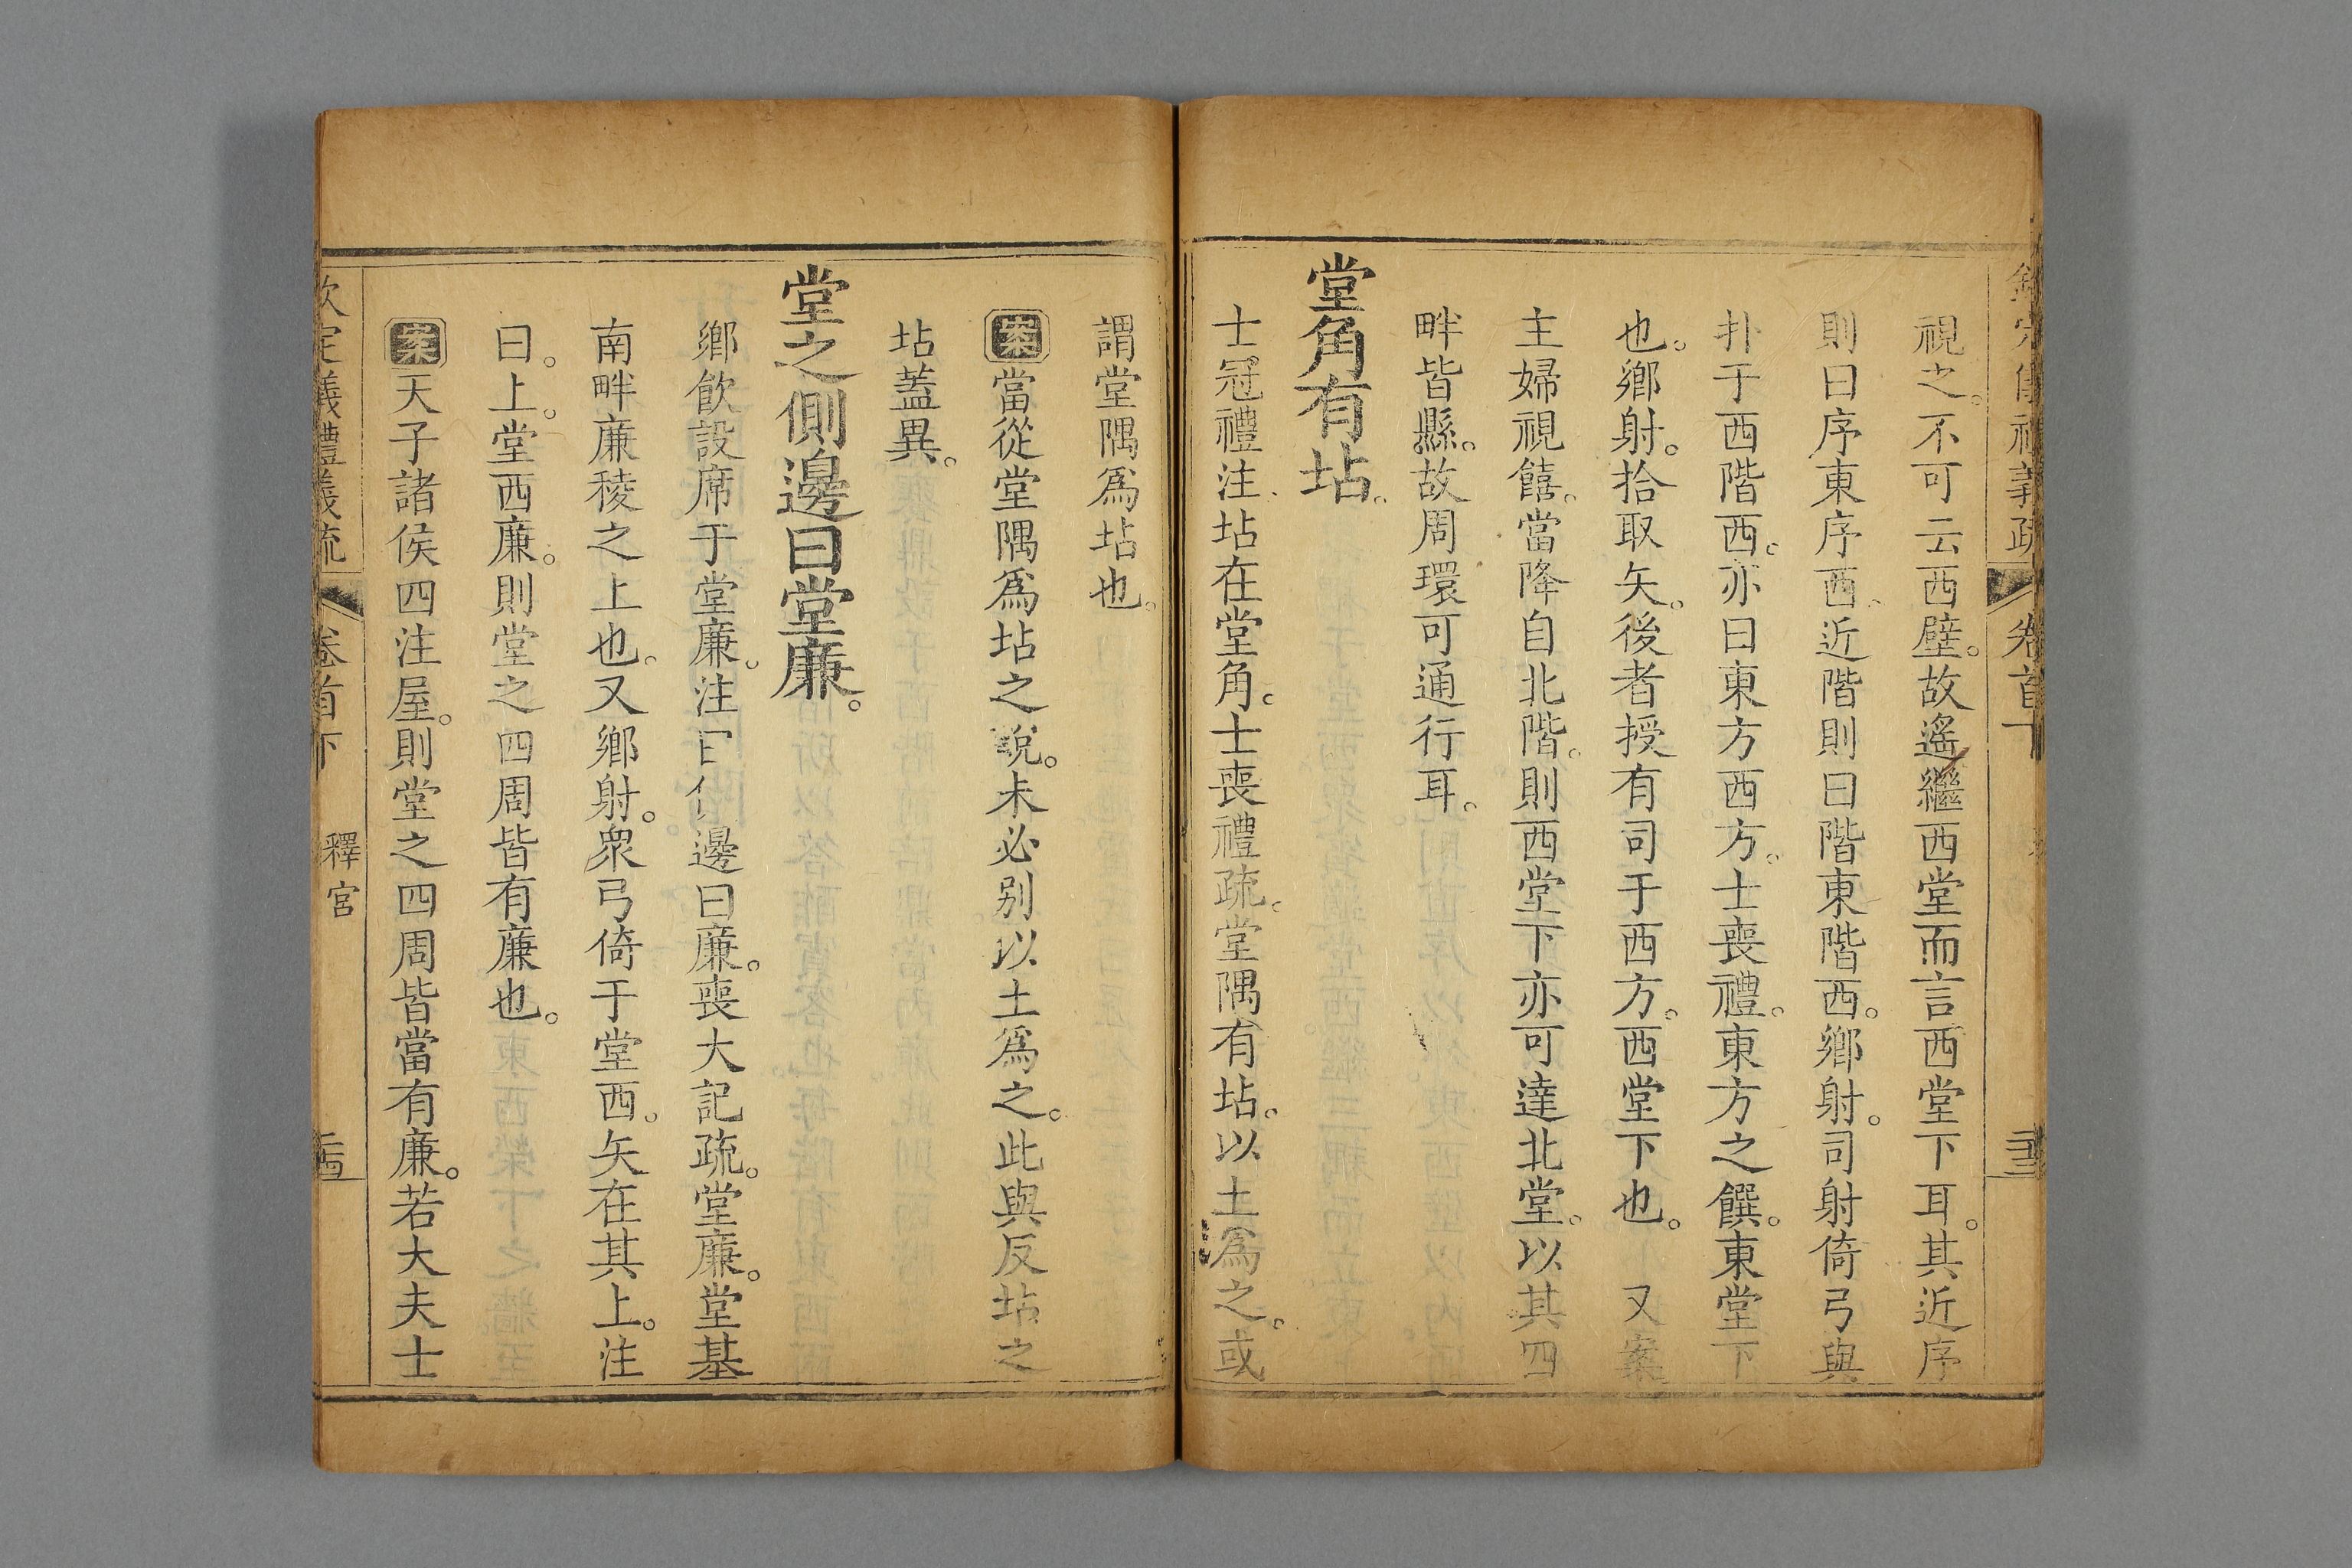 視之。不可云西壁。故遙繼西堂而言西堂下耳。其近序
則曰序東序西。近階則曰階東階西。鄉射。司射倚弓與
扑于西階西。亦曰東方西方。士喪禮。東方之饌。東堂下
也。鄉射。拾取矢。後者授有司于西方。西堂下也。 又案
主婦視饎。當降自北階。則西堂下亦可達北堂。以其四
畔皆縣。故周環可通行耳。
堂角有坫。
士冠禮注。坫在堂角。士喪禮疏。堂隅有坫。以土爲之。或
謂堂隅爲坫也。
案當從堂隅爲坫之說。未必别以土爲之。此與反坫之
坫蓋異。
堂之側邊曰堂廉。
鄉飲設席于堂廉。注曰邊曰廉。喪大記疏。堂廉。堂基
南畔廉稜之上也。又鄉射。衆弓倚于堂西。矢在其上。注
曰。上。堂西廉。則堂之四周皆有廉也。
案天子諸侯四注屋。則堂之四周皆當有廉。若大夫士
欽定義禮義疏 卷首下 釋宮